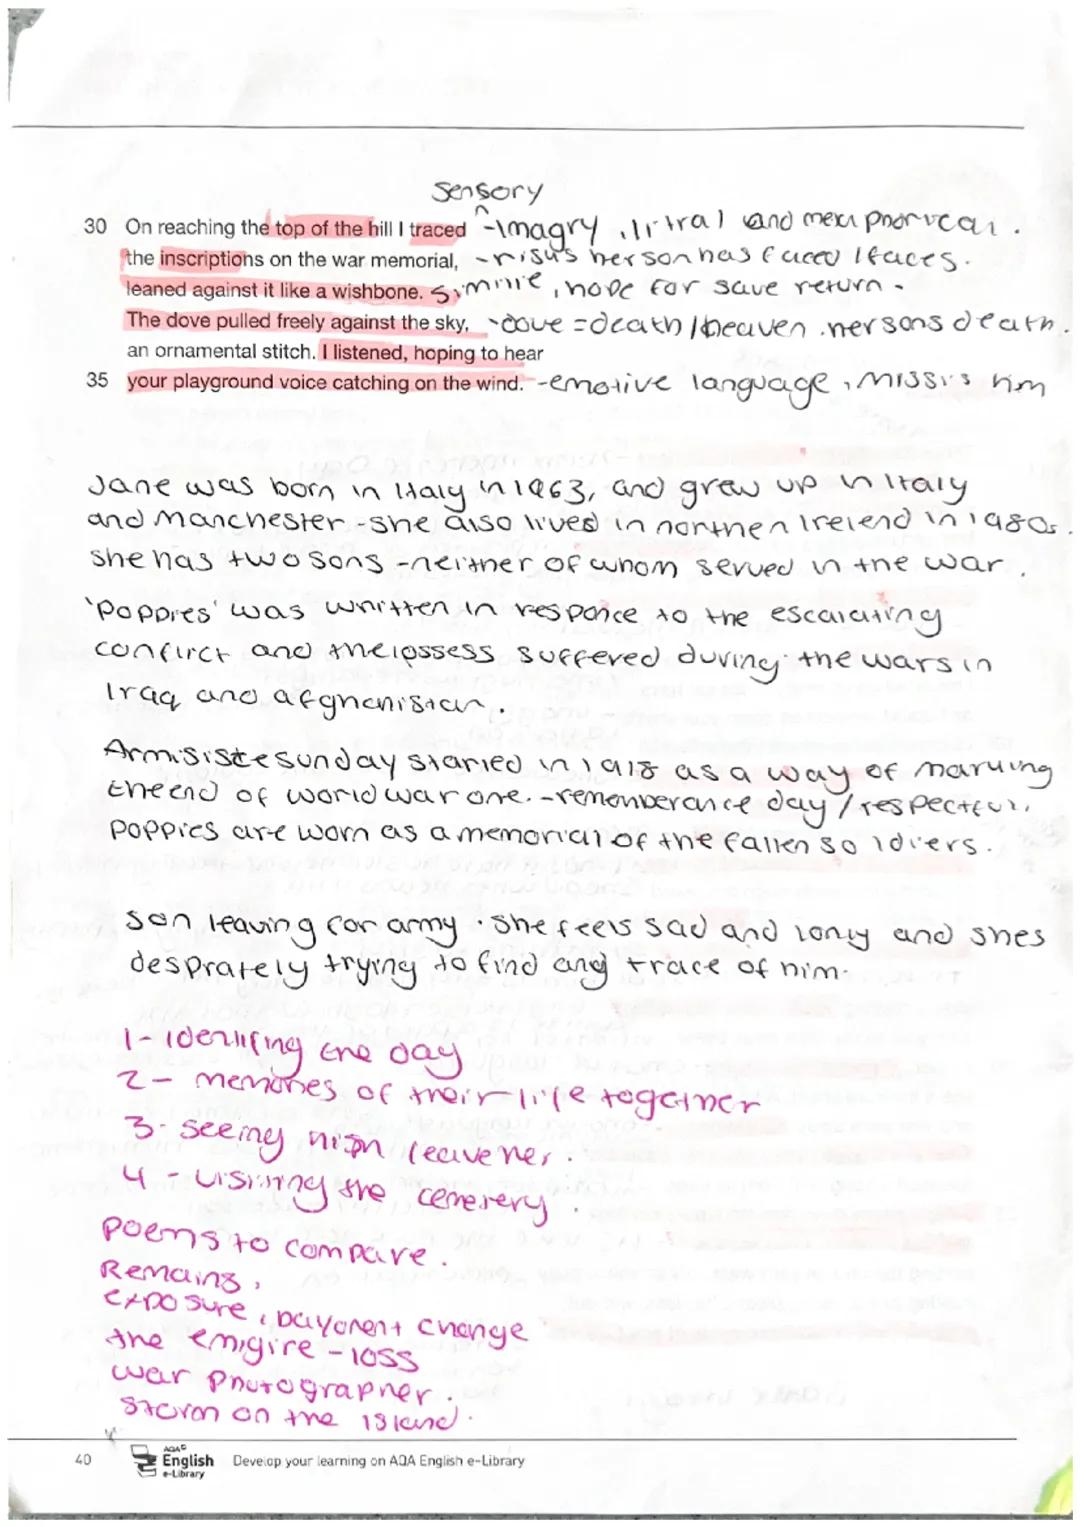 Sensory
30 On reaching the top of the hill I traced - Imagry, litral and metaphorical.
the inscriptions on the war memorial, - her son has faced / faces.
leaned against it like a wishbone. simmile, hope for save return -
The dove pulled freely against the sky, - dove = death / heaven. her sons death.
an ornamental stitch. I listened, hoping to hear
35 your playground voice catching on the wind. - emotive language, missis him
Jane was born in Italy in 1963, and grew up in Italy
and Manchester - she also lived in northen Irelend in 1980s.
she has two sons - neither of whom served in the war.
'Poppies' was written in responce to the escalating
conflict and the lossess suffered during the wars in
Iraq and afghanistan.
Armisiste sunday started in 1918 as a way of marking
the end of world war one. - rememberance day / respectful.
poppies are worn as a memorial of the fallen soldiers.
son leaving for army. She feels sad and lonly and shes
desprately trying to find any trace of him.
1 - identifing the day
2 - memories of their life together
3 - seeing him leave her.
4 - visiting the cemetery.
poems to compare.
Remains,
exposure, bayonent change
the emigire - loss
war photographer.
Storm on the island.
40
AQA
English
e-Library
Develop your learning on AQA English e-Library